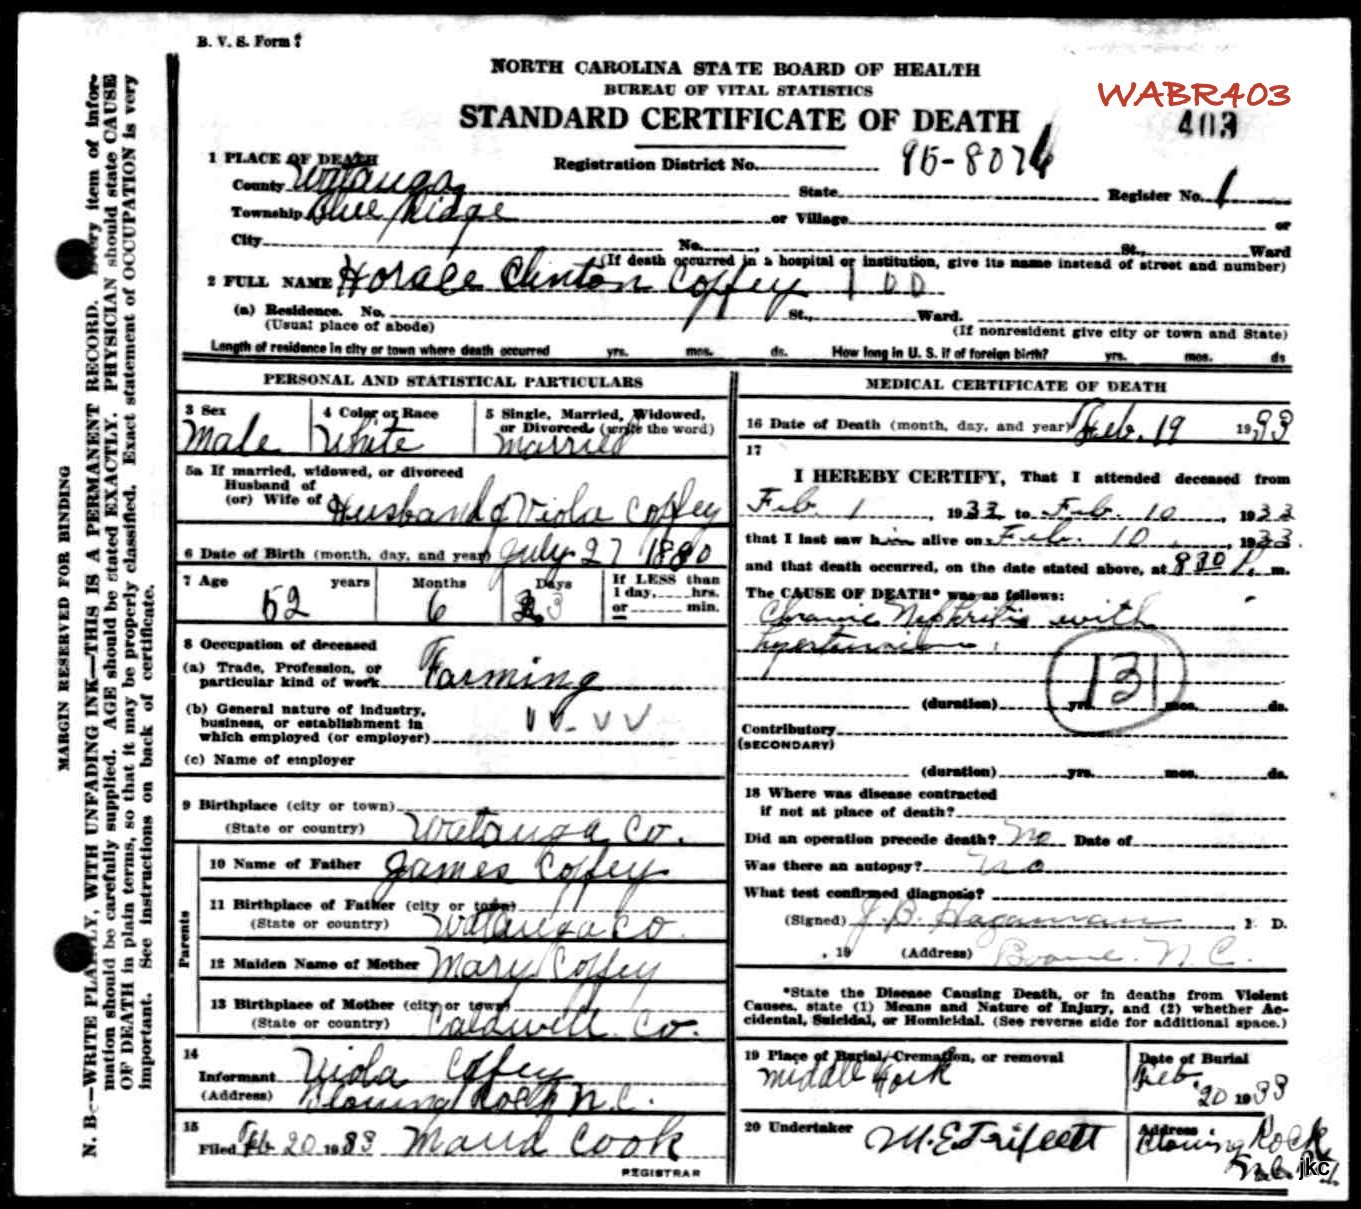 B. V. S. Form
NORTH CAROLINA STATE BOARD OF HEALTH
BUREAU OF VITAL STATISTICS
STANDARD CERTIFICATE OF DEATH
WABR403
403
1 PLACE OF DEATH
Registration District No. 95-8074
County Watauga State Register No. 1
Township Blue Ridge or Village or
City No. , St., Ward
(If death occurred in a hospital or institution, give its name instead of street and number)
2 FULL NAME Horace Clinton Coffey 100
(a) Residence. No. St., Ward.
(Usual place of abode) (If nonresident give city or town and State)
Length of residence in city or town where death occurred yrs. mos. ds. How long in U. S. if of foreign birth? yrs. mos. ds
PERSONAL AND STATISTICAL PARTICULARS
3 Sex Male
4 Color or Race White
5 Single, Married, Widowed,
or Divorced (write the word)
Married
5a If married, widowed, or divorced
Husband of
(or) Wife of Husband of Viola Coffey
6 Date of Birth (month, day, and year) July 27 1880
7 Age years Months Days
52 6 23
If LESS than
1 day, hrs.
or min.
8 Occupation of deceased
(a) Trade, Profession, or
particular kind of work Farming
(b) General nature of industry,
business, or establishment in
which employed (or employer) VV-VV
(c) Name of employer
9 Birthplace (city or town)
(State or country) Watauga Co.
Parents
10 Name of Father James Coffey
11 Birthplace of Father (city or town)
(State or country) Watauga Co.
12 Maiden Name of Mother Mary Coffey
13 Birthplace of Mother (city or town)
(State or country) Caldwell Co.
14
Informant Viola Coffey
(Address) Blowing Rock N.C.
15
Filed Feb 20 1933 Maud Cook
REGISTRAR
MEDICAL CERTIFICATE OF DEATH
16 Date of Death (month, day, and year) Feb. 19 1933
17
I HEREBY CERTIFY, That I attended deceased from
Feb. 1, 1933 to Feb. 10, 1933
that I last saw him alive on Feb. 10, 1933
and that death occurred, on the date stated above, at 830 P. m.
The CAUSE OF DEATH* was as follows:
Chronic Nephritis with
hypertension.
131
(duration) yrs. mos. ds.
Contributory
(SECONDARY)
(duration) yrs. mos. ds.
18 Where was disease contracted
if not at place of death?
Did an operation precede death? No Date of
Was there an autopsy? No
What test confirmed diagnosis?
(Signed) J. B. Hagaman, D.
, 19 (Address) Boone. N. C.
*State the Disease Causing Death, or in deaths from Violent
Causes, state (1) Means and Nature of Injury, and (2) whether Ac-
cidental, Suicidal, or Homicidal. (See reverse side for additional space.)
19 Place of Burial, Cremation, or removal
Middle Fork
Date of Burial
Feb. 20 1933
20 Undertaker M. E. Triplett
Address
Blowing Rock
jkc
MARGIN RESERVED FOR BINDING
N. B.—WRITE PLAINLY, WITH UNFADING INK—THIS IS A PERMANENT RECORD. Every item of infor-
mation should be carefully supplied. AGE should be stated EXACTLY. PHYSICIAN should state CAUSE
OF DEATH in plain terms, so that it may be properly classified. Exact statement of OCCUPATION is very
important. See instructions on back of certificate.